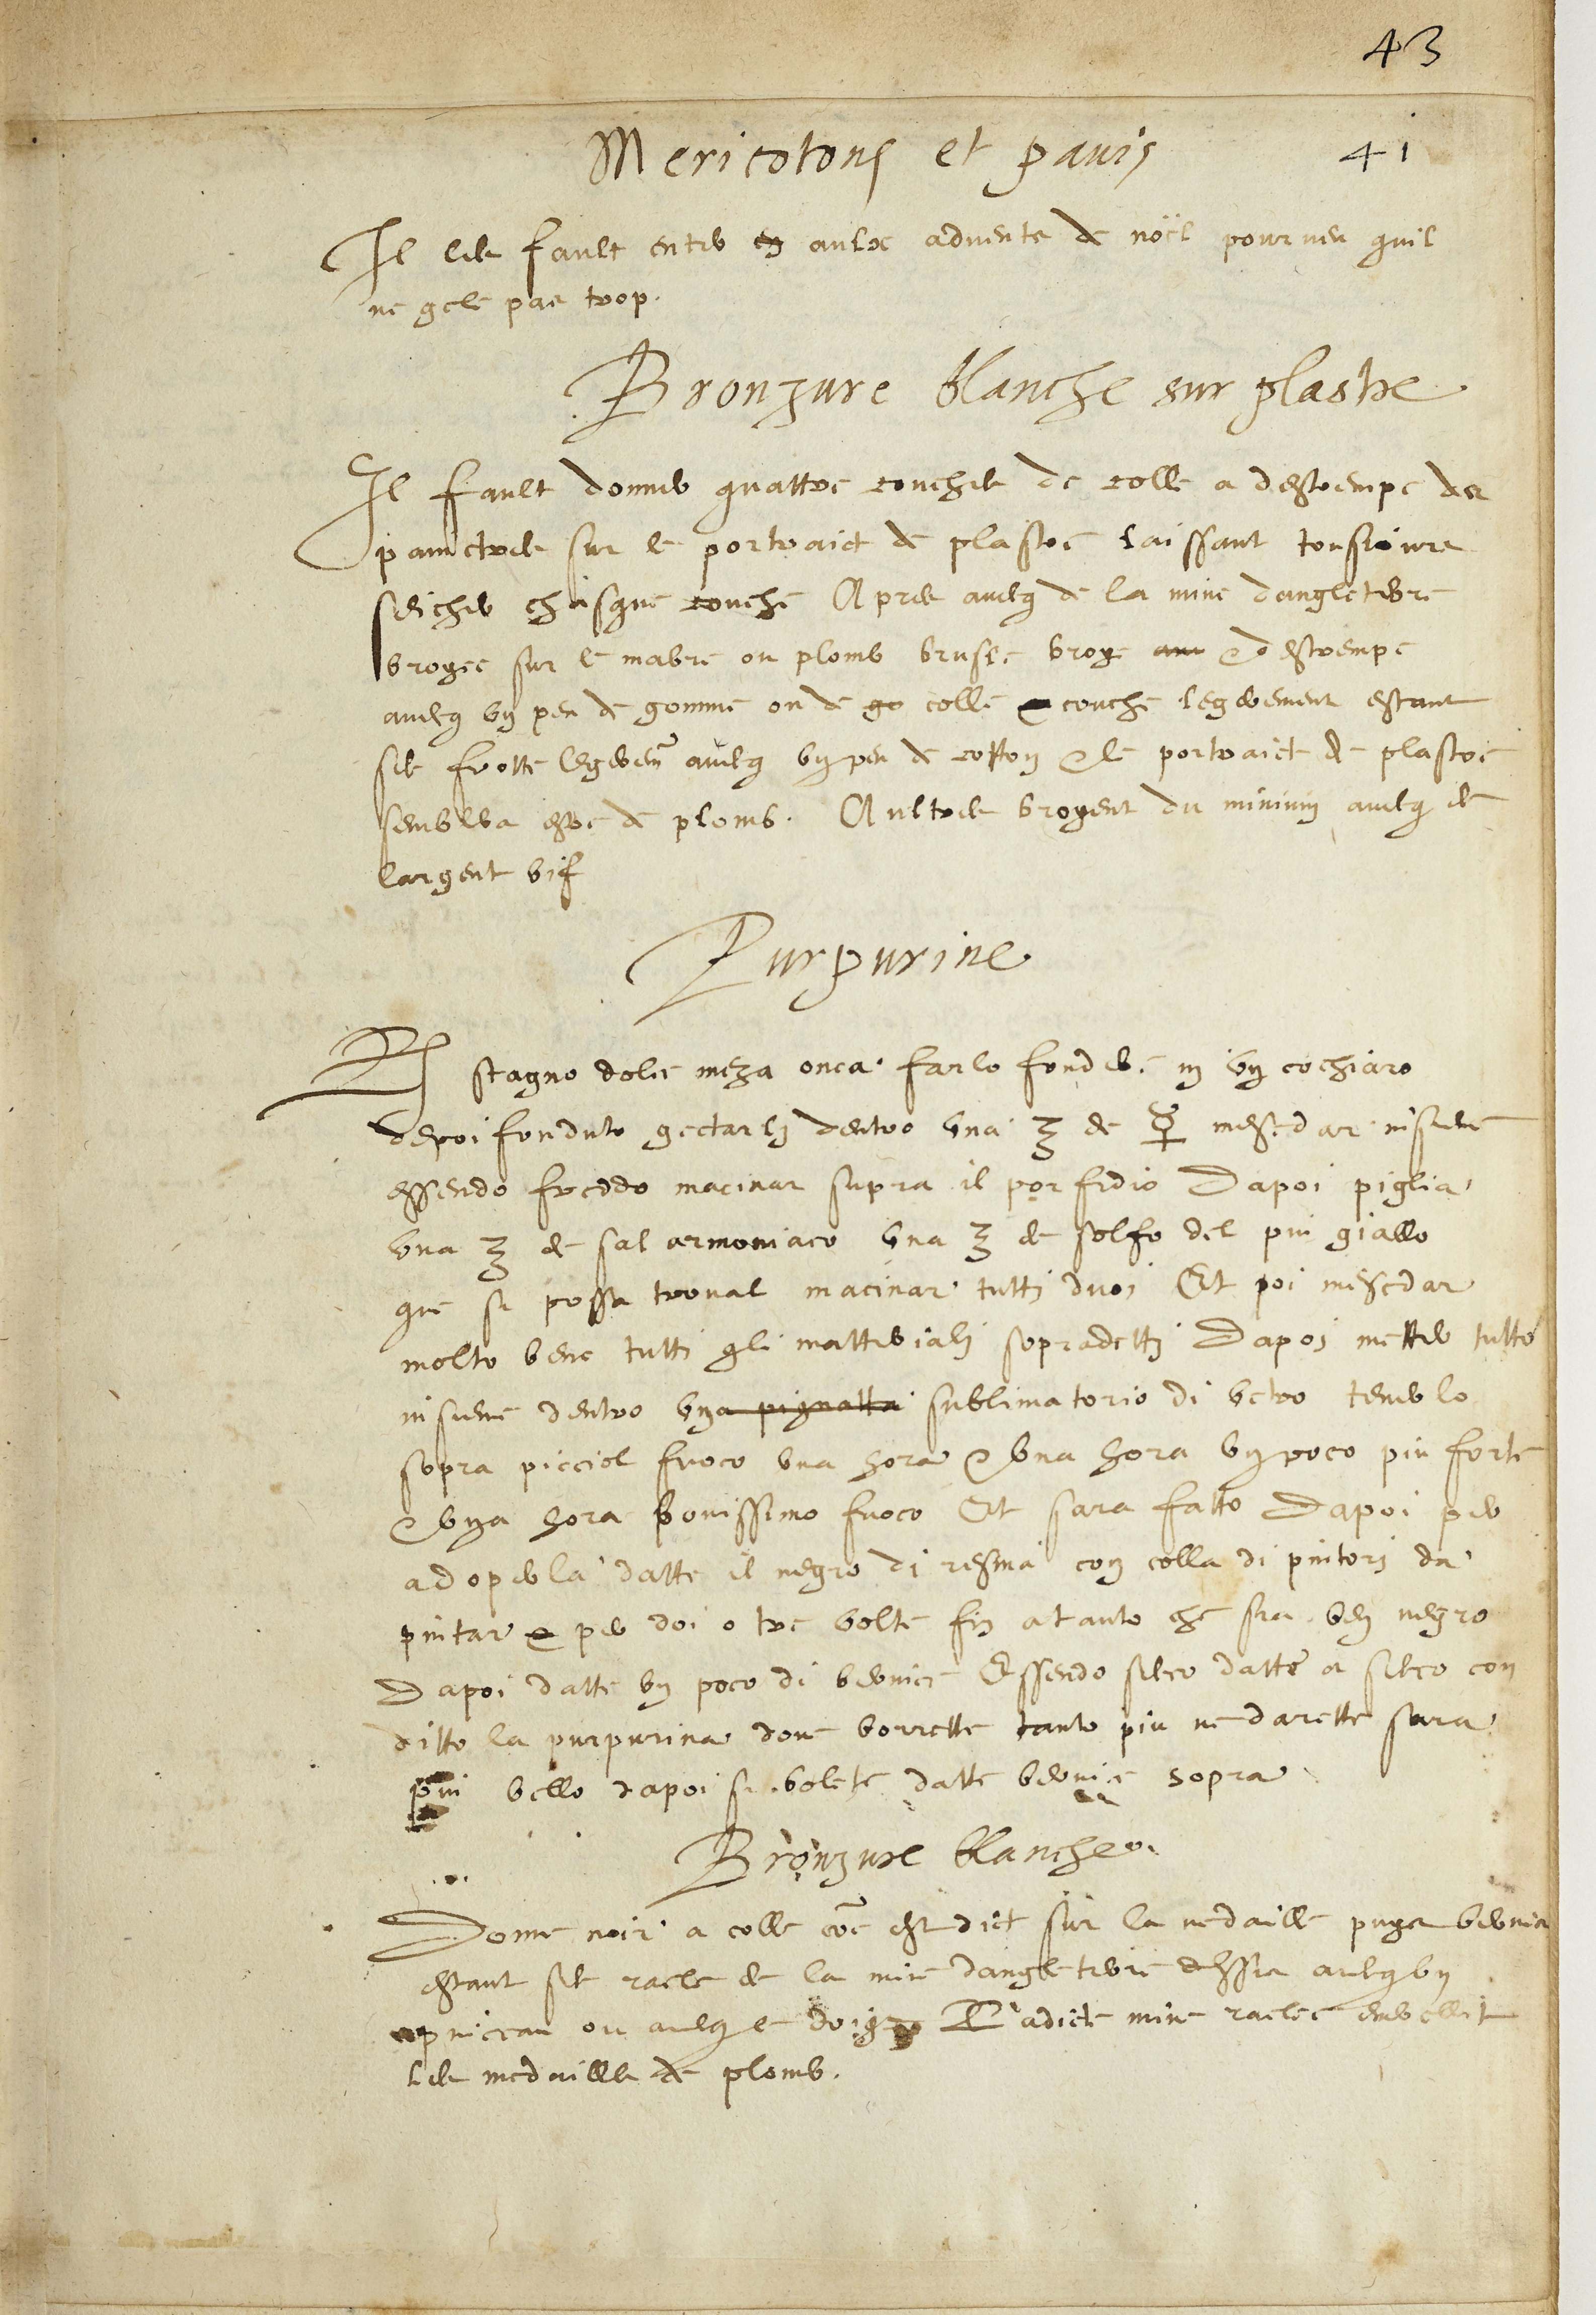 43
41
Mericotons et pavis
Il les fault enter en aulx advents de noël pourveu quil
ne gele pas trop.
Bronzure blanche sur plastre
Il fault donner quattre couches de colle a destrempe des
painctres sur le portraict de plastre laissant tousjours
seicher chasque couche Apres avecq de la mine dangleterre
broyee sur le mabre ou plomb brusle broye avec & destrempe
avecq un peu de gomme ou de go colle & couche legerement estant
sec frotte legerem avecq un peu de cotton & le portraict de plastre
semblera estre de plomb. Aultres broyent du minium avecq de
largent vif
Purpurine
℞ stagno dolce meza onca farlo fondere in un cochiaro
depoi fonduto gectarli dentro una ℥ de ☿ mescdar insieme
essendo freddo macinar supra il porfidio Dapoi piglia
una ℥ de sal armoniaco una ℥ de solfo del piu giallo
que si possa troval macinar tutti duoi Et poi mescdar
molto bene tutti gli matteriali sopradetti Dapoi metter tutto
insieme dentro una pignatta sublimatorio di vetro tenerlo
sopra picciol fuoco una hora & una hora un poco piu forte
& una hora bonissimo fuoco Et sara fatto Dapoi per
adoperla datte il negro di resina con colla di pintori da
pintar & per doi o tre volte fin a tanto che sia ben negro
Dapoi datte un poco di vernice Essendo secco datte a secco con
ditto la purpurina dove vorrette tanto piu ne darette sara
piu bello dapoi si volete datte vernice sopra
Bronzure blanche
Donne noir a colle coe est dict sur la medaille puys vernis
estant sec racle de la mine dangleterre dessus avecq un
pinceau ou avecq le doigt Ladicte mine raclee embellit
les medailles de plomb.